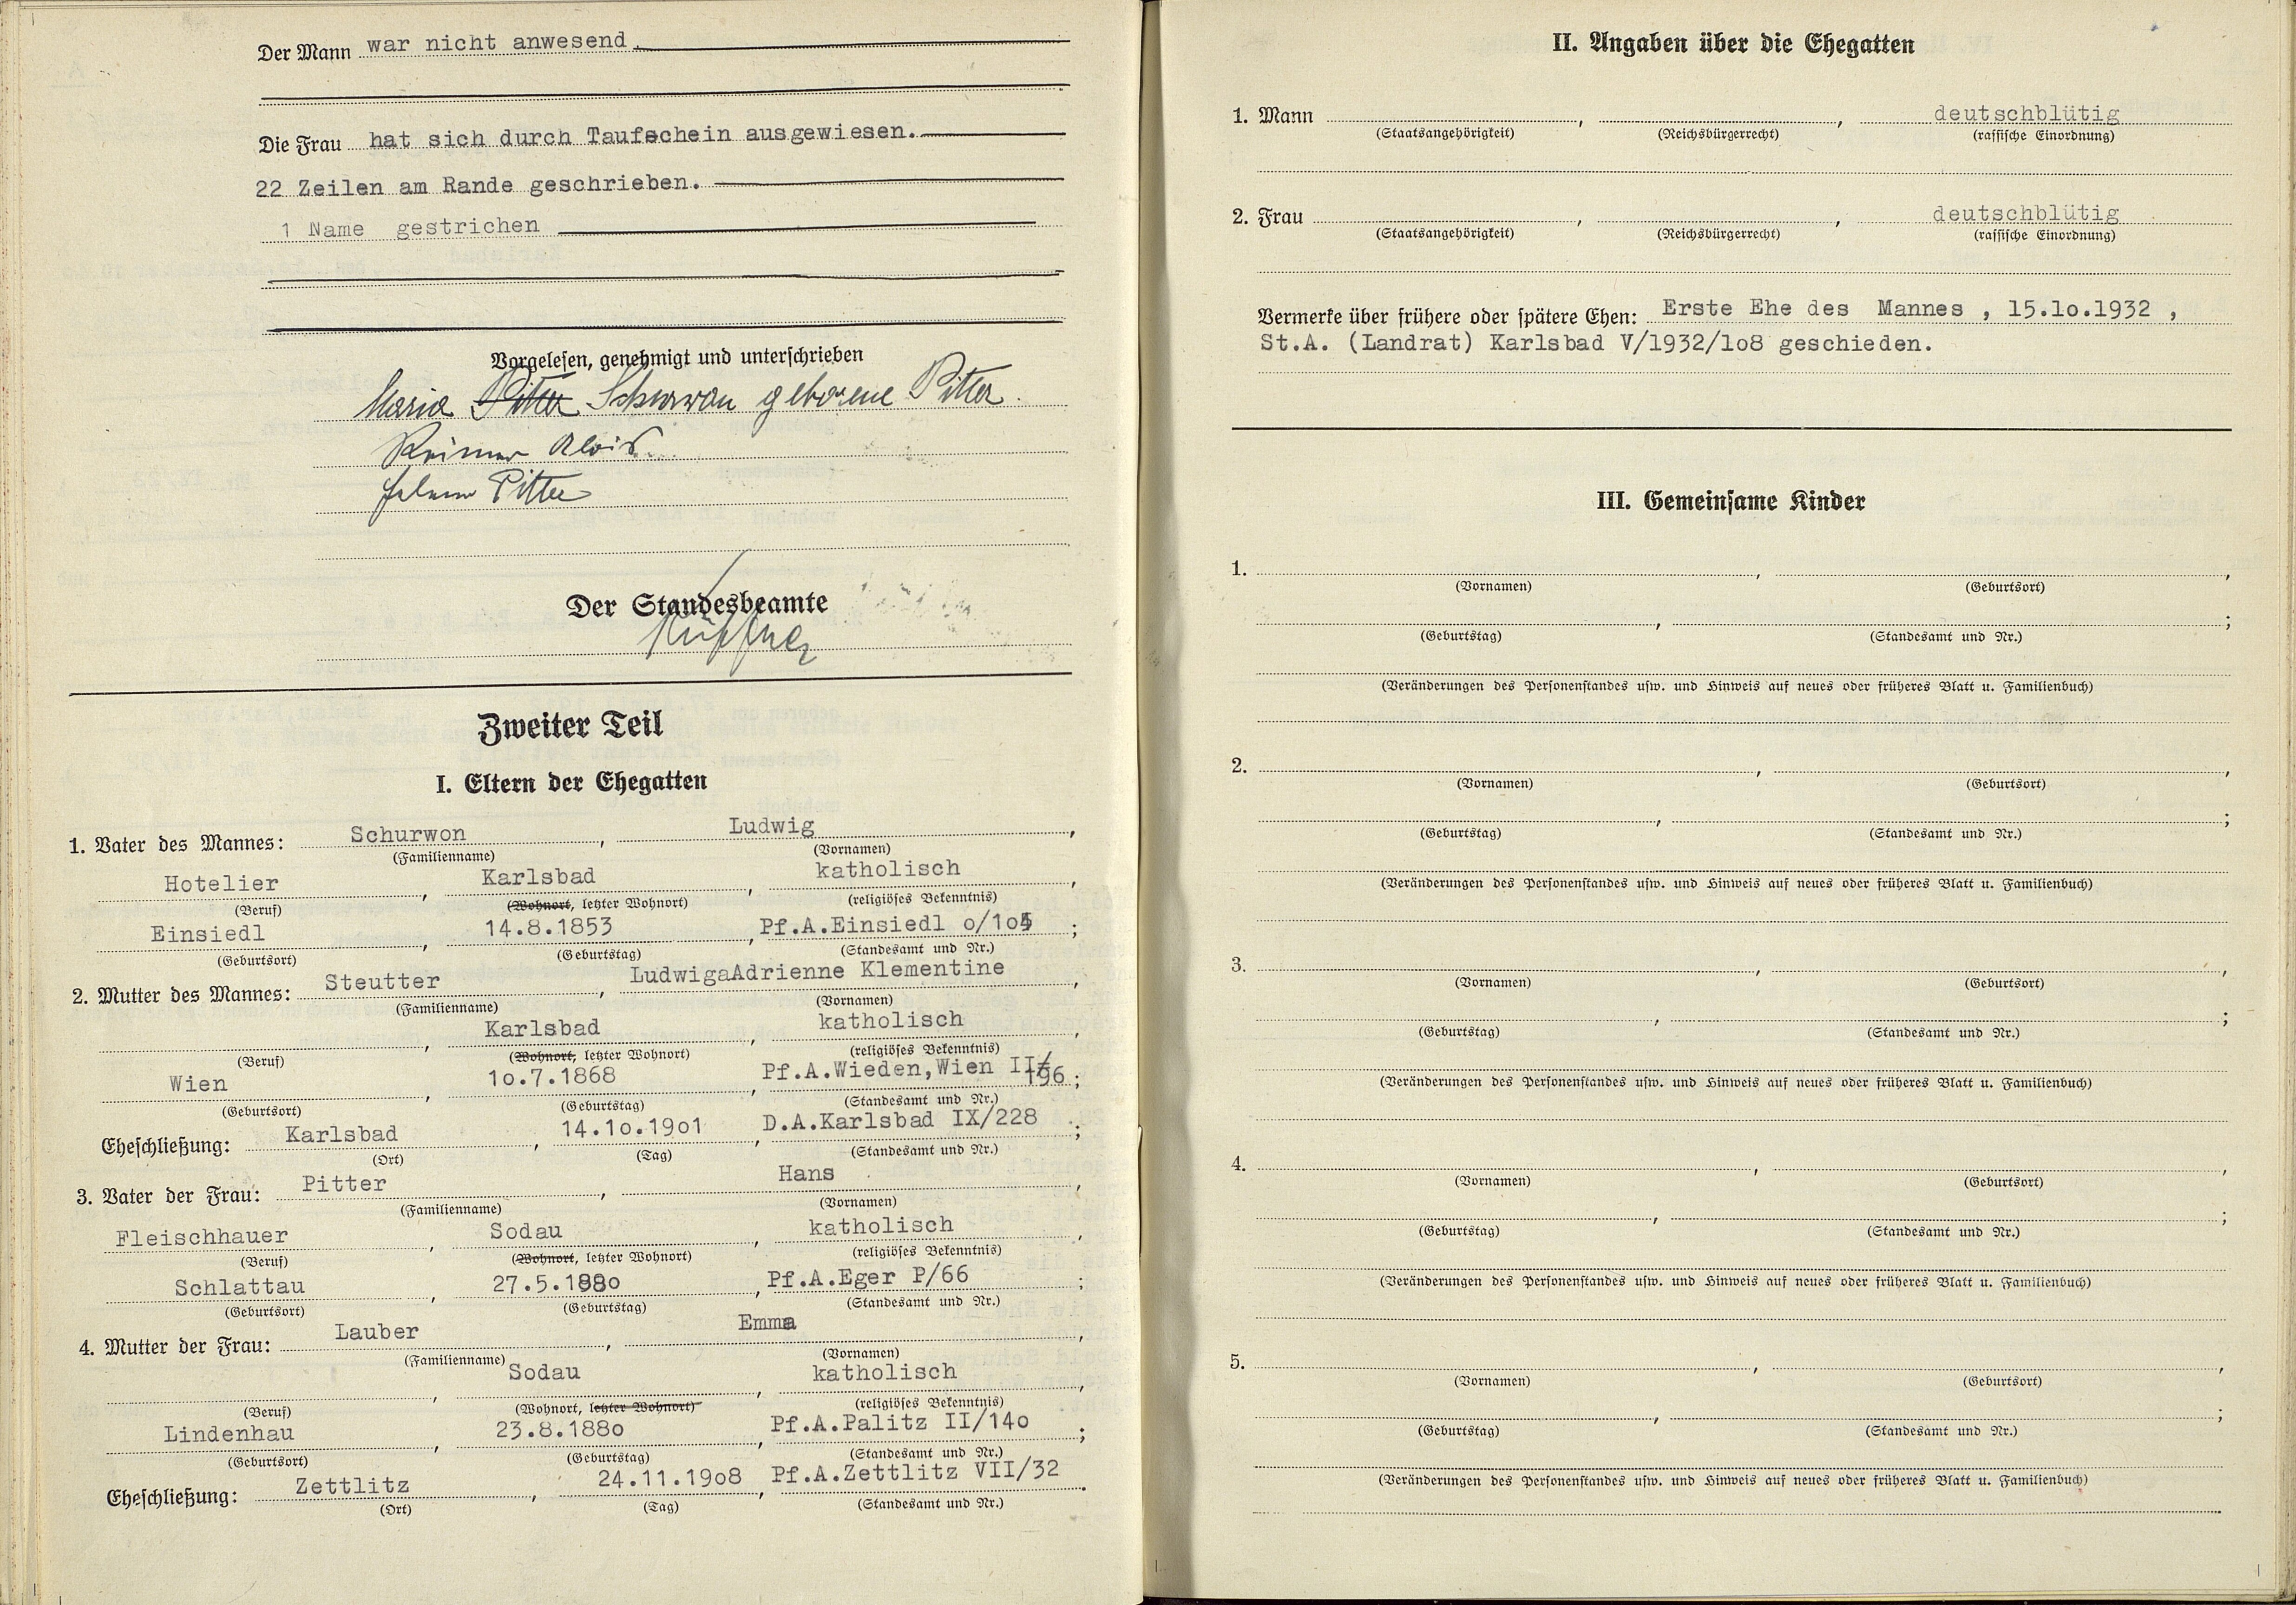 Der Mann war nicht anwesend.
Die Frau hat sich durch Taufschein ausgewiesen.
22 Zeilen am Rande geschrieben.
1 Name gestrichen
Vorgelesen, genehmigt und unterschrieben
Maria Pitter Schurwon geborene Pitter.
Alois
Pitter
Der Standesbeamte
Zweiter Teil
I. Eltern der Ehegatten
1. Vater des Mannes: Schurwon, Ludwig,
(Familienname) (Vornamen)
Hotelier, Karlsbad, katholisch,
(Beruf) (Wohnort, letzter Wohnort) (religiöses Bekenntnis)
Einsiedl, 14.8.1853, Pf.A.Einsiedl o/1o4;
(Geburtsort) (Geburtstag) (Standesamt und Nr.)
2. Mutter des Mannes: Steutter, LudwigaAdrienne Klementine,
(Familienname) (Vornamen)
, Karlsbad, katholisch,
(Beruf) (Wohnort, letzter Wohnort) (religiöses Bekenntnis)
Wien, 1o.7.1868, Pf.A.Wieden,Wien II/196;
(Geburtsort) (Geburtstag) (Standesamt und Nr.)
Eheschließung: Karlsbad, 14.1o.19o1, D.A.Karlsbad IX/228;
(Ort) (Tag) (Standesamt und Nr.)
3. Vater der Frau: Pitter, Hans,
(Familienname) (Vornamen)
Fleischhauer, Sodau, katholisch,
(Beruf) (Wohnort, letzter Wohnort) (religiöses Bekenntnis)
Schlattau, 27.5.188o, Pf.A.Eger P/66;
(Geburtsort) (Geburtstag) (Standesamt und Nr.)
4. Mutter der Frau: Lauber, Emma,
(Familienname) (Vornamen)
, Sodau, katholisch,
(Beruf) (Wohnort, letzter Wohnort) (religiöses Bekenntnis)
Lindenhau, 23.8.188o, Pf.A.Palitz II/14o;
(Geburtsort) (Geburtstag) (Standesamt und Nr.)
Eheschließung: Zettlitz, 24.11.19o8, Pf.A.Zettlitz VII/32.
(Ort) (Tag) (Standesamt und Nr.)
II. Angaben über die Ehegatten
1. Mann , , deutschblütig
(Staatsangehörigkeit) (Reichsbürgerrecht) (rassische Einordnung)
2. Frau , , deutschblütig
(Staatsangehörigkeit) (Reichsbürgerrecht) (rassische Einordnung)
Vermerke über frühere oder spätere Ehen: Erste Ehe des Mannes , 15.1o.1932 ,
St.A. (Landrat) Karlsbad V/1932/1o8 geschieden.
III. Gemeinsame Kinder
1. , ,
(Vornamen) (Geburtsort)
, ;
(Geburtstag) (Standesamt und Nr.)
(Veränderungen des Personenstandes usw. und Hinweis auf neues oder früheres Blatt u. Familienbuch)
2. , ,
(Vornamen) (Geburtsort)
, ;
(Geburtstag) (Standesamt und Nr.)
(Veränderungen des Personenstandes usw. und Hinweis auf neues oder früheres Blatt u. Familienbuch)
3. , ,
(Vornamen) (Geburtsort)
, ;
(Geburtstag) (Standesamt und Nr.)
(Veränderungen des Personenstandes usw. und Hinweis auf neues oder früheres Blatt u. Familienbuch)
4. , ,
(Vornamen) (Geburtsort)
, ;
(Geburtstag) (Standesamt und Nr.)
(Veränderungen des Personenstandes usw. und Hinweis auf neues oder früheres Blatt u. Familienbuch)
5. , ,
(Vornamen) (Geburtsort)
, ;
(Geburtstag) (Standesamt und Nr.)
(Veränderungen des Personenstandes usw. und Hinweis auf neues oder früheres Blatt u. Familienbuch)